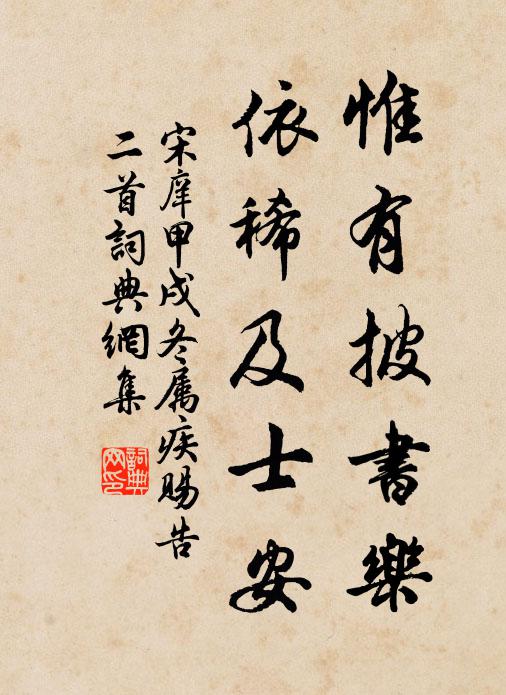 惟有披書樂
依稀及士安
宋庠甲戌冬属疾賜告
二首詞典網集
詞典
网印